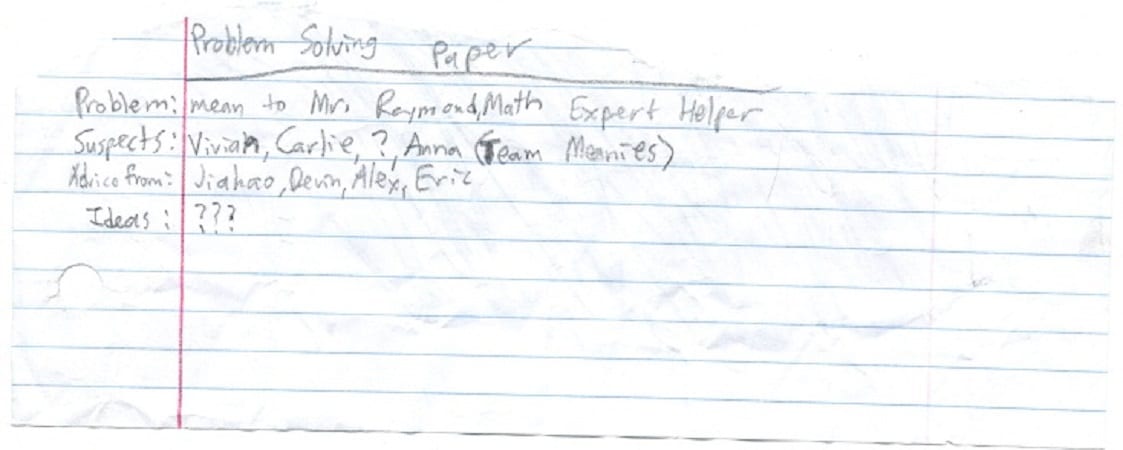 Problem Solving Paper
Problem: mean to Mr. Raymond, Math Expert Helper
Suspects: Vivian, Carlie, ?, Anna (Team Meanies)
Advice from: Jiahao, Devin, Alex, Eric
Ideas: ???